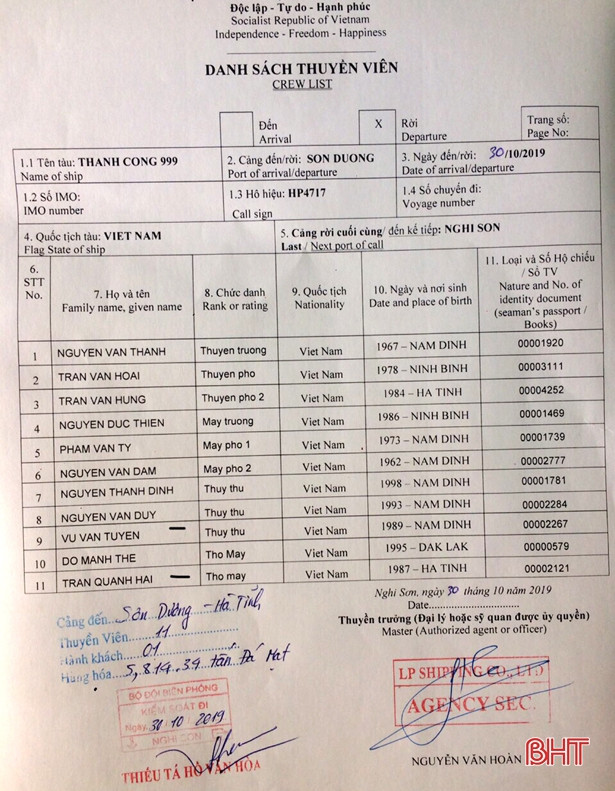 Độc lập - Tự do - Hạnh phúc
Socialist Republic of Vietnam
Independence - Freedom - Happiness
DANH SÁCH THUYỀN VIÊN
CREW LIST
Đến
Arrival
X
Rời
Departure
Trang số:
Page No:
1.1 Tên tàu: THANH CONG 999
Name of ship
2. Cảng đến/rời: SON DUONG
Port of arrival/departure
3. Ngày đến/rời: 30/10/2019
Date of arrival/departure
1.2 Số IMO:
IMO number
1.3 Hô hiệu: HP4717
Call sign
1.4 Số chuyến đi:
Voyage number
4. Quốc tịch tàu: VIET NAM
Flag State of ship
5. Cảng rời cuối cùng/ đến kế tiếp: NGHI SON
Last / Next port of call
6.
STT
No.
7. Họ và tên
Family name, given name
8. Chức danh
Rank or rating
9. Quốc tịch
Nationality
10. Ngày và nơi sinh
Date and place of birth
11. Loại và Số Hộ chiếu
/ Sổ TV
Nature and No. of
identity document
(seaman's passport /
Books)
1 NGUYEN VAN THANH Thuyen truong Viet Nam 1967 – NAM DINH 00001920
2 TRAN VAN HOAI Thuyen pho Viet Nam 1978 – NINH BINH 00003111
3 TRAN VAN HUNG Thuyen pho 2 Viet Nam 1984 – HA TINH 00004252
4 NGUYEN DUC THIEN May truong Viet Nam 1986 – NINH BINH 00001469
5 PHAM VAN TY May pho 1 Viet Nam 1973 – NAM DINH 00001739
6 NGUYEN VAN DAM May pho 2 Viet Nam 1962 – NAM DINH 00002777
7 NGUYEN THANH DINH Thuy thu Viet Nam 1998 – NAM DINH 00001781
8 NGUYEN VAN DUY Thuy thu Viet Nam 1993 – NAM DINH 00002284
9 VU VAN TUYEN Thuy thu Viet Nam 1989 – NAM DINH 00002267
10 DO MANH THE Tho May Viet Nam 1995 – DAK LAK 00000579
11 TRAN QUANH HAI Tho may Viet Nam 1987 – HA TINH 00002121
Nghi Sơn, ngày 30 tháng 10 năm 2019
Date..............................
Thuyền trưởng (Đại lý hoặc sỹ quan được ủy quyền)
Master (Authorized agent or officer)
Cảng đến... Sơn Dương - Hà Tĩnh
Thuyền Viên... 11
Hành khách... 01
Hàng hóa... 5,814.39 tấn Đá Mạt
BỘ ĐỘI BIÊN PHÒNG
KIỂM SOÁT ĐI
Ngày 30 10 2019
NGHI SƠN
THIẾU TÁ HỒ VĂN HÒA
LP SHIPPING CO., LTD
AGENCY SEC.
NGUYỄN VĂN HOÀN
BHT